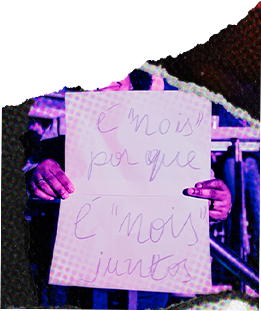 é "nois"
por que
É "nois"
juntos